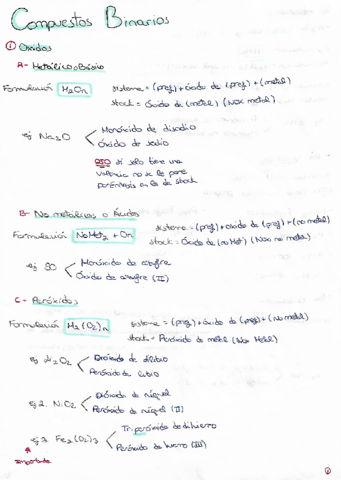 Compuestos Binarios
① Óxidos
A- Metálico o Básico
Formulación M2On
sistema = (pref) + óxido de (pref) + (metal)
stock = Óxido de (metal) (Nox metal)
ej Na2O
Monóxido de disodio
Óxido de sodio
OJO si solo tiene una
valencia no se le pone
paréntesis a la de stock
B- No metálicos o Ácidos
Formulación NoMet2 + On
sistema = (pref) + óxido de (pref) + (no metal)
stock = Óxido de (no Met) (Nox no metal)
ej SO
Monóxido de azufre
Óxido de azufre (II)
C- Peróxidos
Formulación M2 (O2)n
sistema = (pref) + óxido de (pref) + (No metal)
stock - Peróxido de metal (Nox Metal)
ej Li2O2
Dióxido de dilitio
Peróxido de litio
ej 2. NiO2
Dióxido de níquel
Peróxido de níquel (II)
ej 3 Fe2(O2)3
Triperóxido de dihierro
Peróxido de hierro (III)
importante